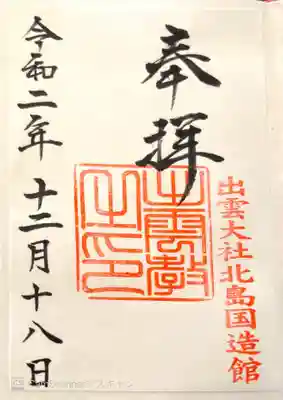 出雲大社北島国造館
奉拝
出雲教
之印
令和二年十二月十八日